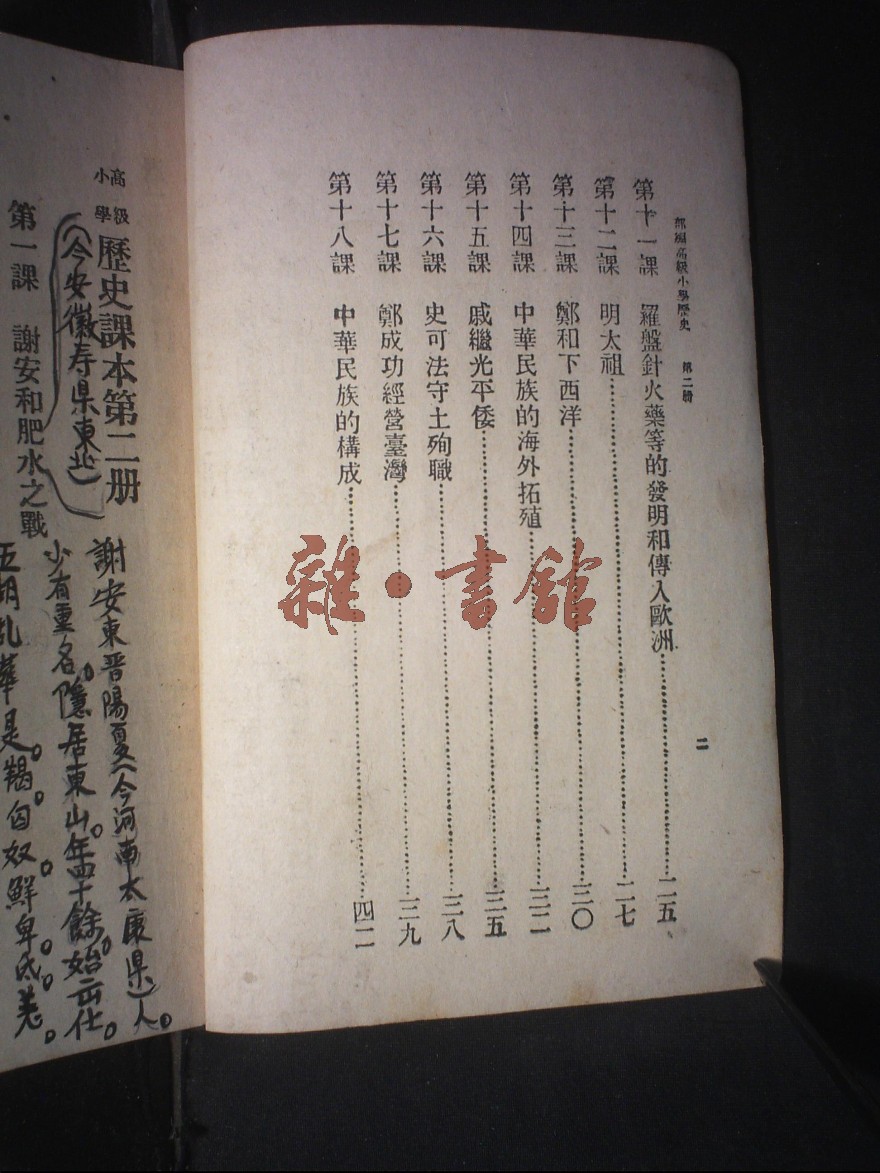 部編高級小學歷史 第二册
二
第十一課 羅盤針火藥等的發明和傳入歐洲……二五
第十二課 明太祖……二七
第十三課 鄭和下西洋……三〇
第十四課 中華民族的海外拓殖……三二
第十五課 戚繼光平倭……三五
第十六課 史可法守土殉職……三八
第十七課 鄭成功經營臺灣……三九
第十八課 中華民族的構成……四二
雜·書館
高級小學 歷史課本第二册
(今安徽寿県東北)
第一課 謝安和肥水之戰
謝安東晋陽夏(今河南太康県)人。
少有重名。隱居東山。年四十餘。始出仕。
五胡乱華是。羯。匈奴。鮮卑。氐。羌。